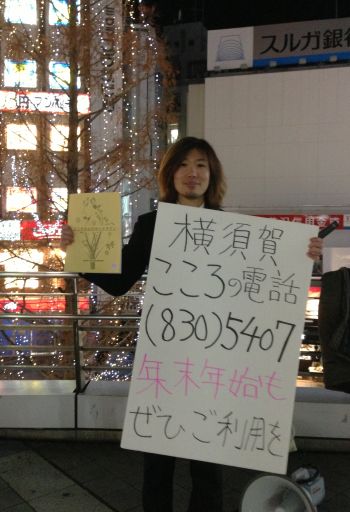 スルガ銀行
横須賀
こころの電話
(830)5407
年末年始も
ぜひご利用を